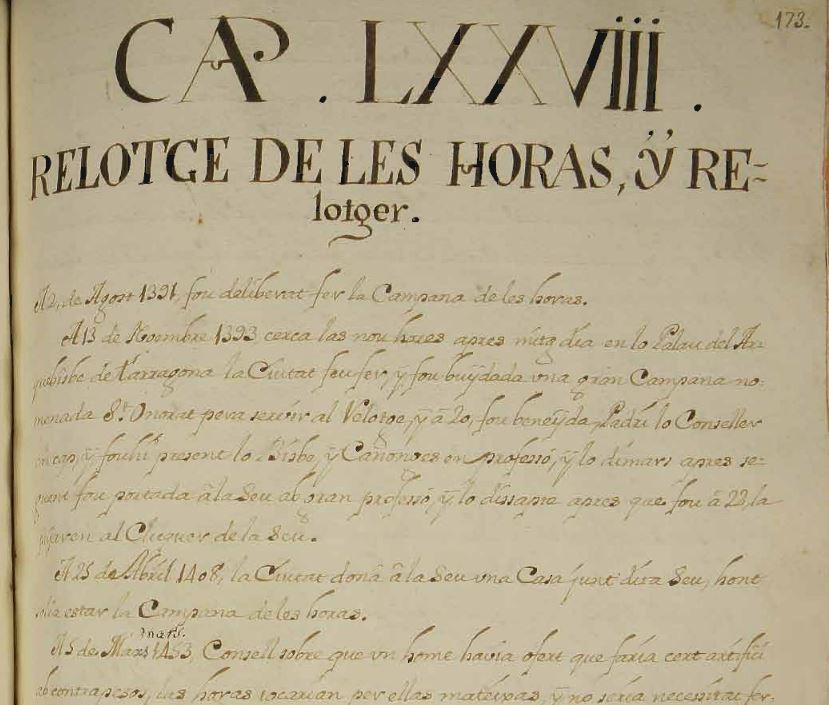 173.
CAP. LXXVIII.
RELOTGE DE LES HORAS, Ÿ RE=
lotger.
A 2, de Agost 1391, fou deliberat fer la Campana de les horas.
A 13 de Noembre 1393 cerca las nou hores apres mitg dia en lo Palau del Ar-
quebisbe de Tarragona la Ciutat feu fer, ÿ fou buÿdada una gran Campana no-
menada St. Onorat pera servir al Relotge, ÿ â 20, fou beneÿda, Padrí lo Conseller
en cap, ÿ fouhi present lo Bisbe, ÿ Canonges en professó, ÿ lo dimars apres se-
guent fou portada â la Seu ab gran professó, ÿ lo dissapte apres que fou â 23, la
pujaren al Cloquer de la Seu.
A 25 de Abril 1408, la Ciutat donâ â la Seu una Casa junt dita Seu, hont
solia estar la Campana de les horas.
A 5 de Mars 1453, Consell sobre que un home havia ofert que faria cert artifici
ab contrapesos, las horas tocarian per ellas mateixas, ÿ no seria necessitat fer-